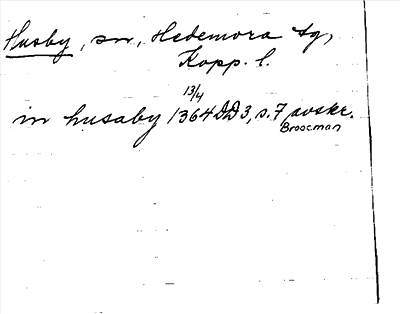 Husby, sn., Hedemora tg,
Kopp. l.
13/4
in husaby 1364 DD 3, s. 7 avskr.
Broocman